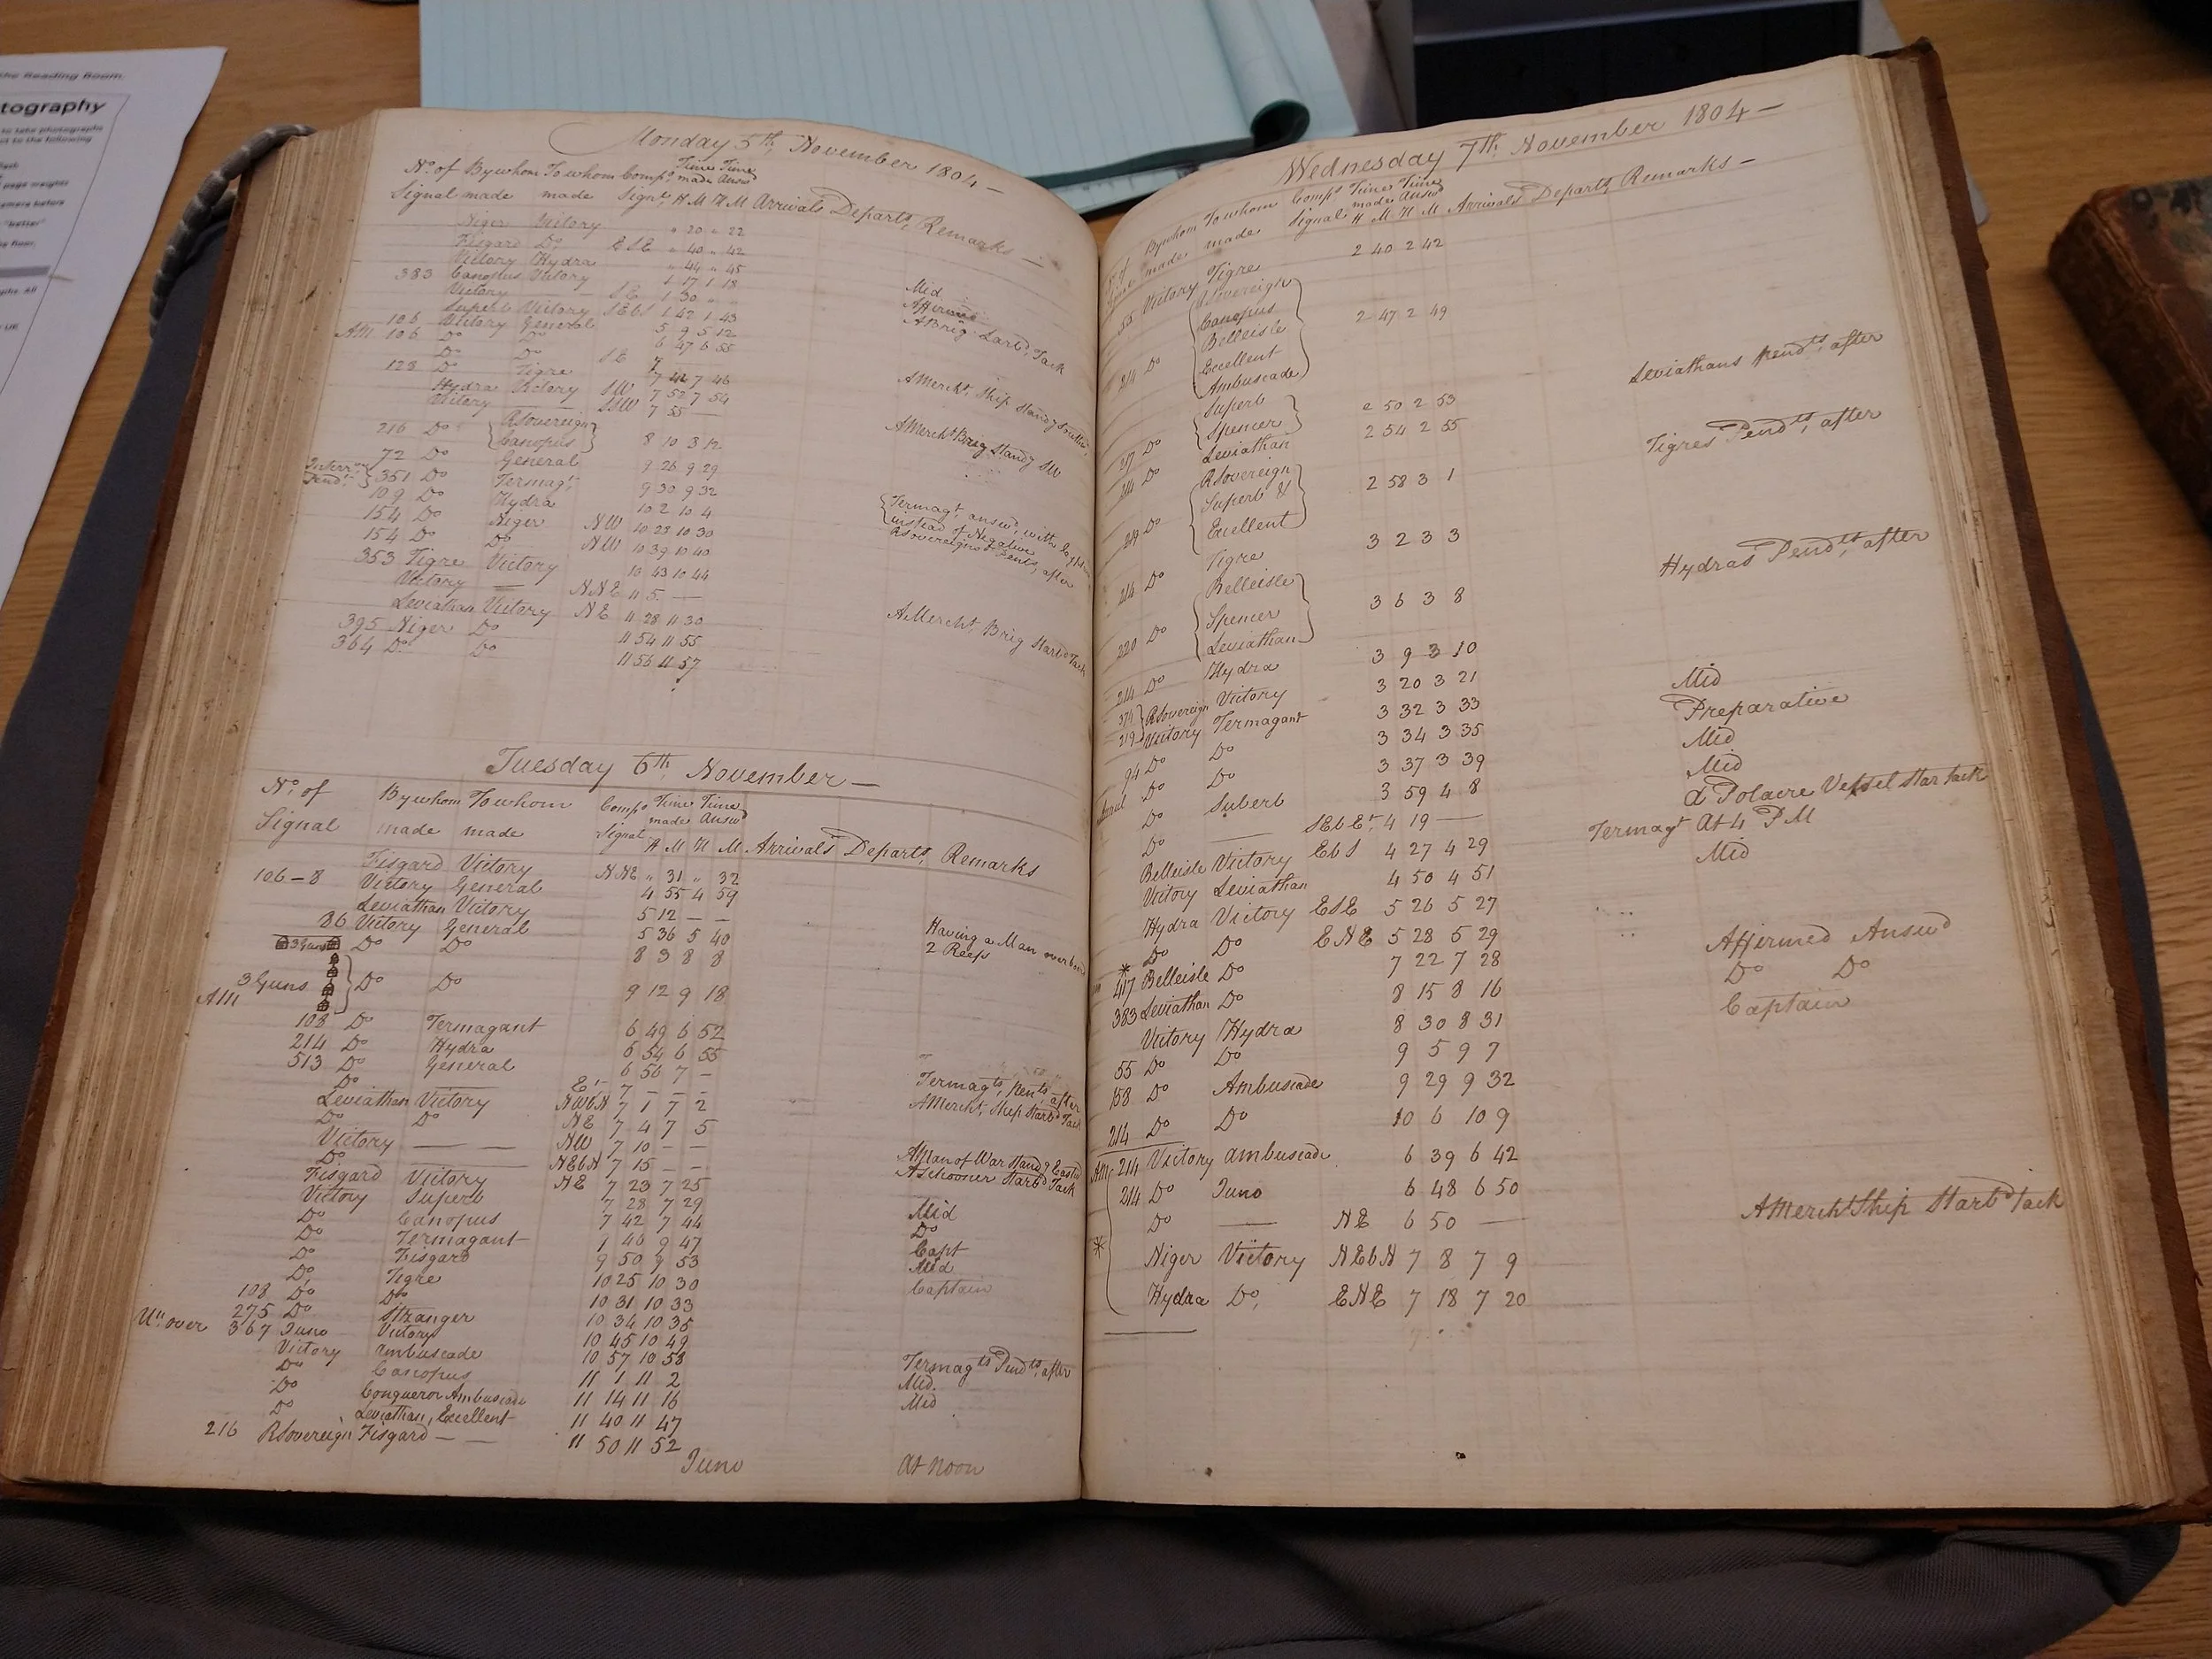 the Reading Room.
tography
to take photographs
ct to the following
page weights
amera before
"better"
ng floor.
Monday 5th, November 1804 —
No. of By whom To whom Comps. Time Time
Signal made made Signl. made Answd
H M H M Arrivals Departs, Remarks —
Niger Victory " 20 " 22
Fisgard Do, ESE " 40 " 42
Victory Hydra " 44 " 45
383 Canopus Victory 1 17 1 18 Mid
Victory — SE 1 30 " " Affirmd
Superb Victory SEbS 1 42 1 43 A Brig Larbd. Tack
106 Victory General 5 9 5 12
AM 106 Do Do 6 47 6 55
Do Do SE 7
128 Do Tigre 7 46
Hydra Victory SW 7 52 7 54 A Mercht, Ship Standg
Victory — SSW 7 55 —
216 Do {RSovereign Canopus} 8 10 8 12 A Mercht Brig Standg SW
72 Do General 9 26 9 29
351 Do Termagt, 9 30 9 32
109 Do Hydra 10 2 10 4
154 Do Niger NW 10 28 10 30 {Termagt, answd, with
154 Do Do, NW 10 39 10 40 instead of Negative
353 Tigre Victory 10 43 10 44 RSovereigns Pents, after
Victory — NNE 11 5 —
Leviathan Victory NE 11 28 11 30 A Mercht, Brig Starbd Tack
395 Niger Do 11 54 11 55
364 Do Do 11 56 11 57
Tuesday 6th, November —
No. of By whom To whom Comps Time Time
made Answd
Signal made made Signal H M H M Arrivals Departs, Remarks
Fisgard Victory NNE " 31 " 32
106-8 Victory General 4 55 4 59
Leviathan Victory 5 12 — — Having a Man overboard
86 Victory General 5 36 5 40 2 Reefs
3 Guns Do Do 8 3 8 8
3 Guns } Do Do 9 12 9 18
AM
108 Do Termagant 6 49 6 52
214 Do Hydra 6 54 6 55
513 Do General 6 56 7 —
Do — Et. 7 — — — Termagts, Pents, after
Leviathan Victory NWbN 7 1 7 2 A Mercht, Ship Starbd Tack
Do Do NE 7 4 7 5
Victory — NW 7 10 — —
Do — NEbN 7 15 — — A Man of War Standg Eastd
Fisgard Victory NE 7 23 7 25 A Schooner Starbd Tack
Victory Superb 7 28 7 29
Do Canopus 7 42 7 44 Mid
Do Termagant 9 46 9 47 Do
Do Fisgard 9 50 9 53 Capt
Do, Tigre 10 25 10 30 Mid
108 Do Do 10 31 10 33 Captain
275 Do Stranger 10 34 10 35
Un over 367 Juno Victory 10 45 10 49
Victory Ambuscade 10 57 10 58
Do Canopus 11 1 11 2 Termagts Pendts, after
Do Conqueror Ambuscade 11 14 11 16 Mid.
Do Leviathan, Excellent 11 40 11 47 Mid
216 RSovereign Fisgard — — 11 50 11 52
Juno At noon
Wednesday 7th November 1804 —
By whom To whom Comps Time Time
made made Signal made Answd
H M H M Arrivals Departs, Remarks —
55 Victory Tigre 2 40 2 42
214 Do {RSovereign
Canopus
Belleisle 2 47 2 49
Excellent
Ambuscade}
217 Do {Superb
Spencer} 2 50 2 53 Leviathans Pendts, after
214 Do Leviathan 2 54 2 55
219 Do {RSovereign
Superb & 2 58 3 1 Tigres Pendts, after
Excellent}
214 Do Tigre 3 2 3 3
220 Do {Belleisle
Spencer 3 6 3 8 Hydras Pendts, after
Leviathan}
214 Do Hydra 3 9 3 10
374 } RSovereign Victory 3 20 3 21 Mid
219 } Victory Termagant 3 32 3 33 Preparative
94 Do Do 3 34 3 35 Mid
Annul Do Do 3 37 3 39 Mid
Do Suberb 3 59 4 8
Do — SEbEt. 4 19 — a Polacre Vessel Star tack
Belleisle Victory EbS 4 27 4 29 Termagt At 4 PM
Victory Leviathan 4 50 4 51 Mid
Hydra Victory ESE 5 26 5 27
Do Do ENE 5 28 5 29
* 417 Belleisle Do 7 22 7 28 Affirmed Answd
383 Leviathan Do 8 15 8 16 Do Do
Victory Hydra 8 30 8 31 Captain
55 Do Do 9 5 9 7
158 Do Ambuscade 9 29 9 32
214 Do Do 10 6 10 9
AM 214 Victory Ambuscade 6 39 6 42
214 Do Juno 6 48 6 50
Do — NE 6 50 — A Mercht Ship Starbd Tack
* Niger Victory NEbN 7 8 7 9
Hydra Do, ENE 7 18 7 20